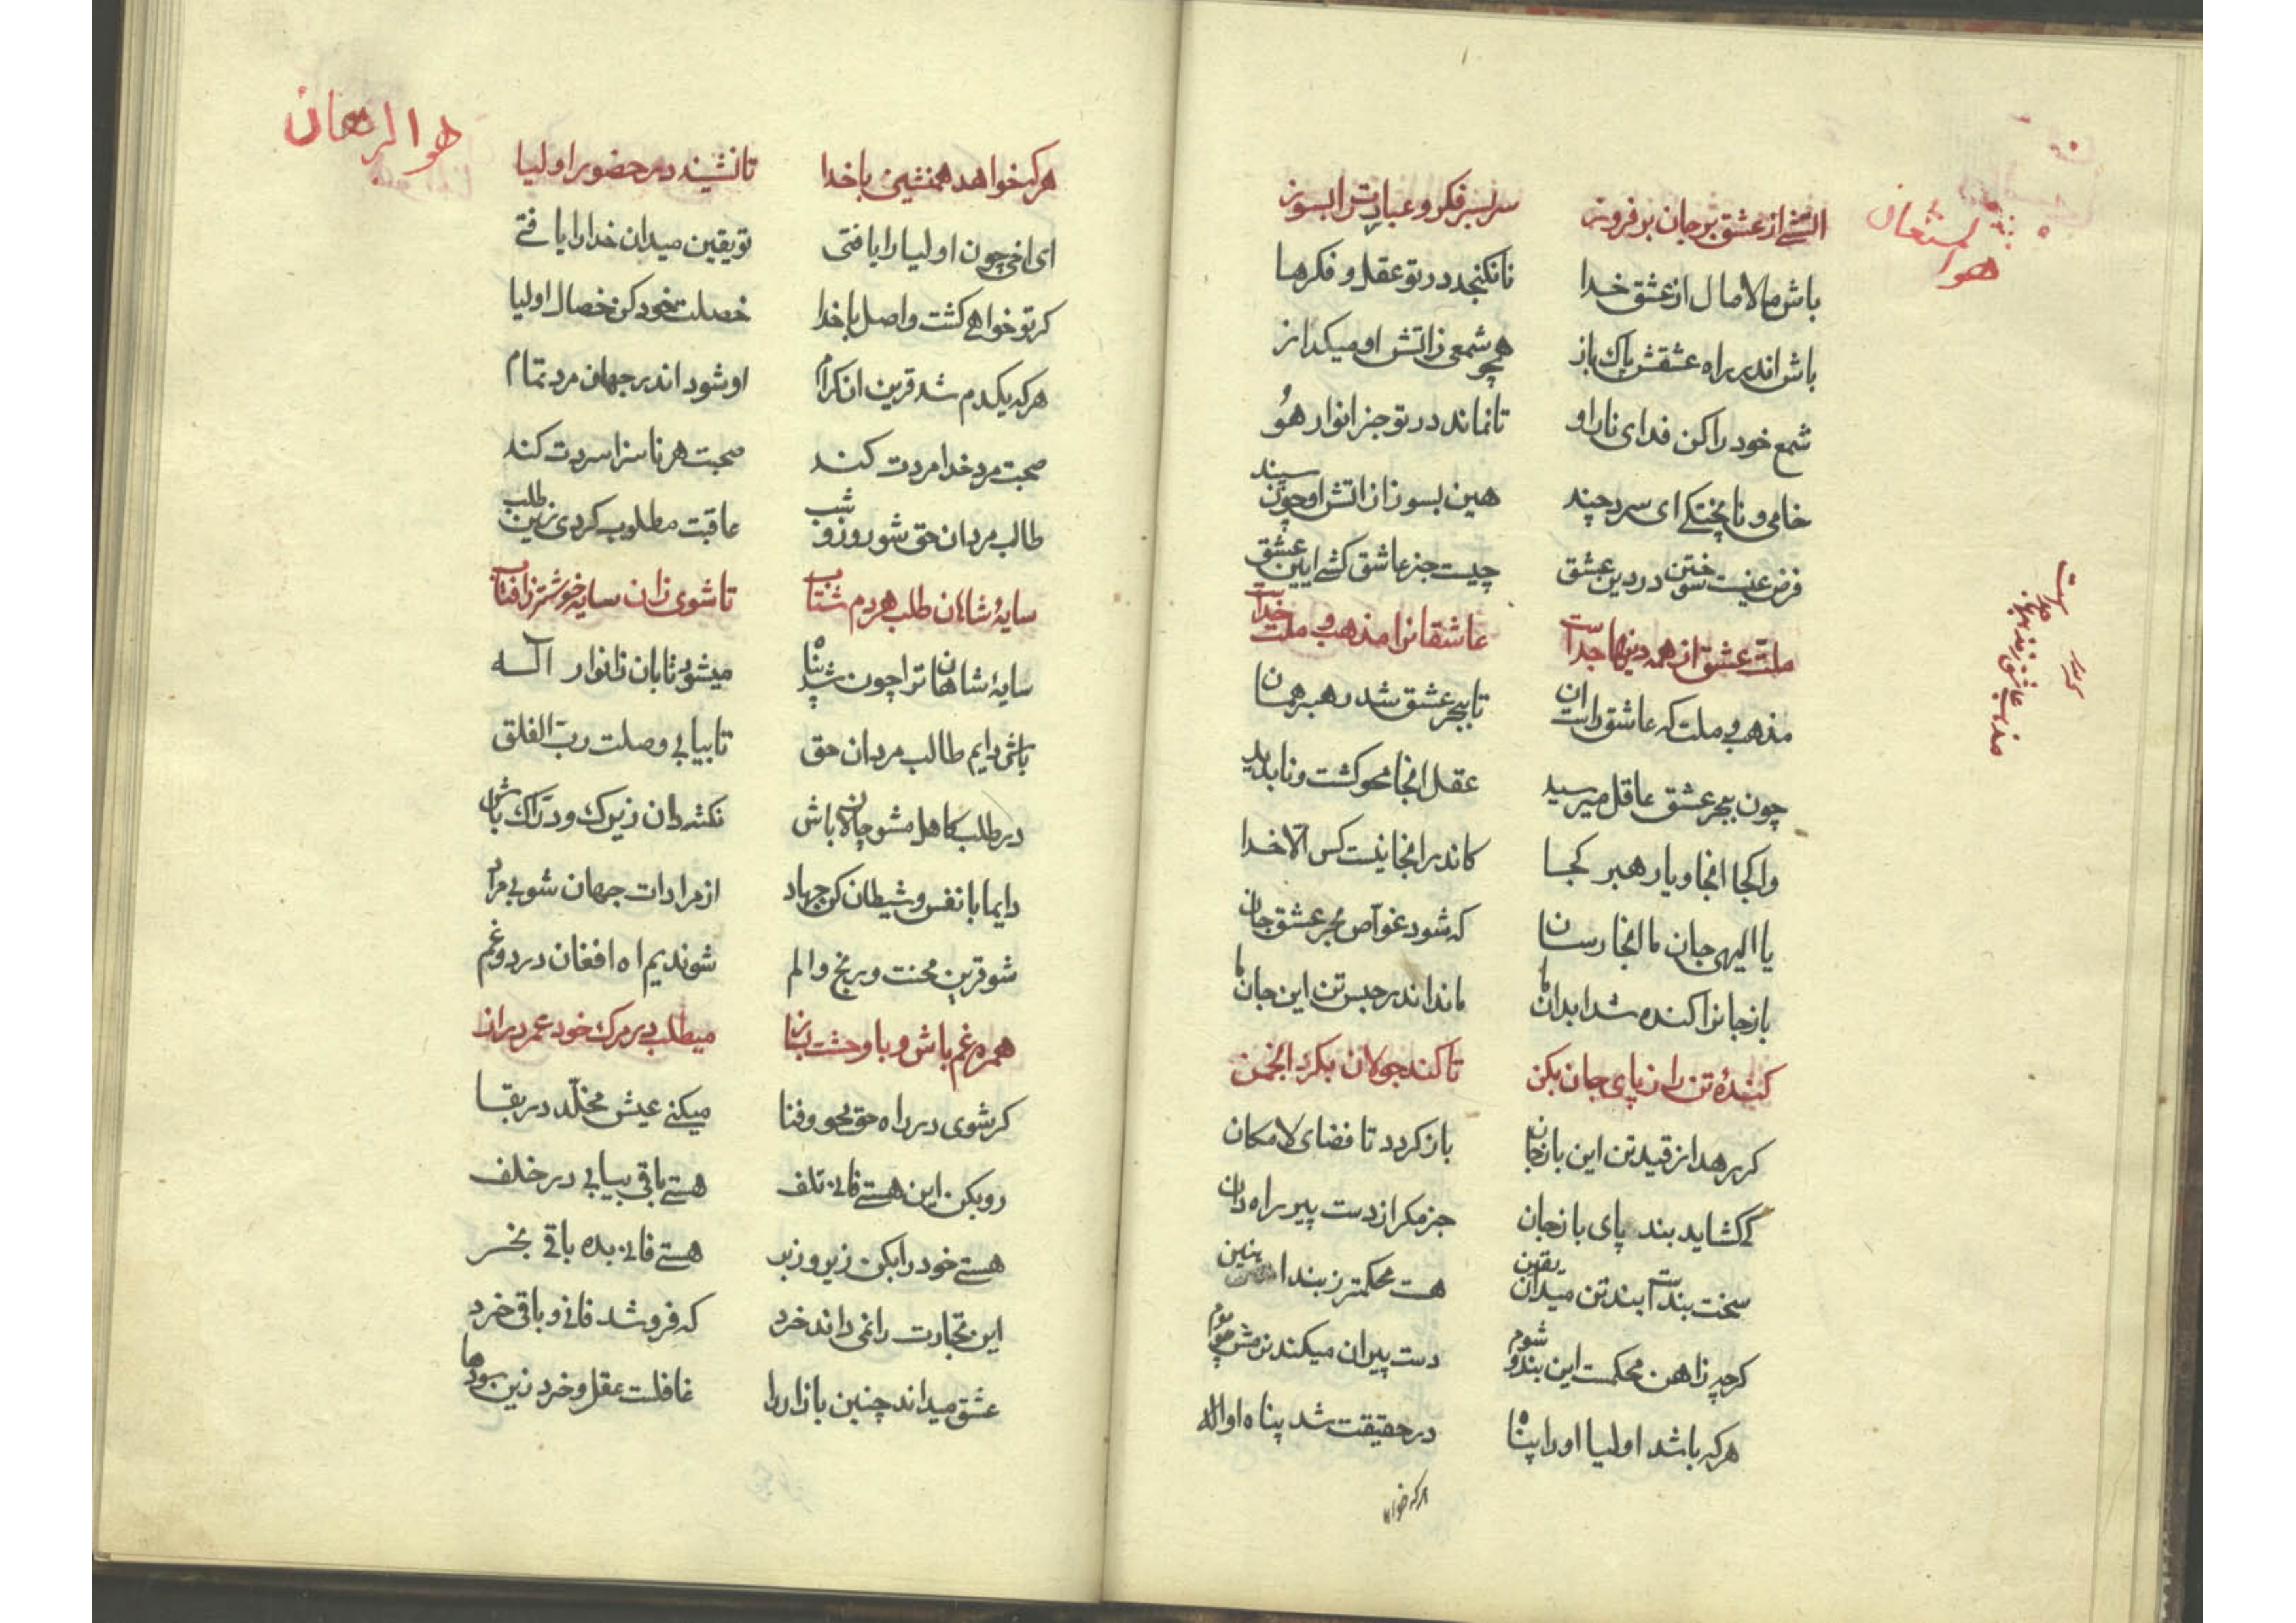 هو المستعان
اتشی از عشق بر جان بر فروز سر بسر فکر و عبارت را بسوز
باش مالامال از عشق خدا تا نکنجد در تو عقل و فکرها
باش اندر راه عشقش پاک باز همچو شمعی ز اتش او میکداز
شمع خود را کن فدای نار او تا نماند در تو جز انوار هو
خامی و نا پختکی ای سرد چند هین بسوز از اتش او چون سپند
فرض عینست سوختن در دین عشق چیست جز عاشق کشی ایین عشق
ملت عشق از همه دینها جداست عاشقانرا مذهب و ملت خداست
مذهب و ملت که عاشق راست ان تا ببحر عشق شد رهبر همان
چون ببحر عشق عاقل میرسید عقل انجا محو کشت و ناپدید
وا کجا انجا و یار رهبر کجا کاندر انجا نیست کس الا خدا
یا الهی جان ما انجا رسان که شود غواص بحر عشق جان
باز جانرا کنده شد ابدان ما ماند اندر حبس تن این جان ما
کندهٔ تن را ز پای جان بکن تا کند جولان بکرد انجمن
کر رهد از قید تن این باز جان باز کردد تا فضای لامکان
کی کشاید بند پای باز جان جز مکر از دست پیر راه دان
سخت بندست بند تن میدان یقین هست محکمتر ز بند اهنین
کرچه ز اهن محکمست این بند شوم دست پیران میکند نرمش چو موم
هر که باشد اولیا او را پناه در حقیقت شد پناه او اله
هر که خواهد
مذهب عاشق ز مذهبها جداست
هو الرحمان
هر که خواهد همنشین با خدا تا نشیند در حضور اولیا
ای اخی چون اولیا را یافتی تو یقین میدان خدا را یافتی
کر تو خواهی کشت واصل با خدا خصلت خود کن خصال اولیا
هر که یکدم شد قرین ان کرام او شود اندر جهان مرد تمام
صحبت مرد خدا مردت کند صحبت هر ناسزا سردت کند
طالب مردان حق شو روز و شب عاقبت مطلوب کردی زین طلب
سایهٔ شاهان طلب هر دم شتاب تا شوی زان سایه خوشتر ز افتاب
سایهٔ شاهان ترا چون شد پناه میشوی تابان ز انوار اله
باش دایم طالب مردان حق تا بیابی وصلت رب الفلق
در طلب کاهل مشو چالاک باش نکته دان زیرک و درّاک باش
دایما با نفس و شیطان کن جهاد از مرادات جهان شو بی مراد
شو قرین محنت و رنج و الم شو ندیم اه افغان درد و غم
همره غم باش و با وحشت بساز میطلب در مرک خود عمر دراز
کر شوی در راه حق محو و فنا میکنی عیش مخلّد در بقا
رو بکن این هستی فانی تلف هستی باقی بیابی در خلف
هستی خود را بکن زیر و زبر هستی فانی بده باقی بخر
این تجارت را نمی داند خرد که فروشد فانی و باقی خرد
عشق میداند چنین بازار را غافلست عقل و خرد زین سودها